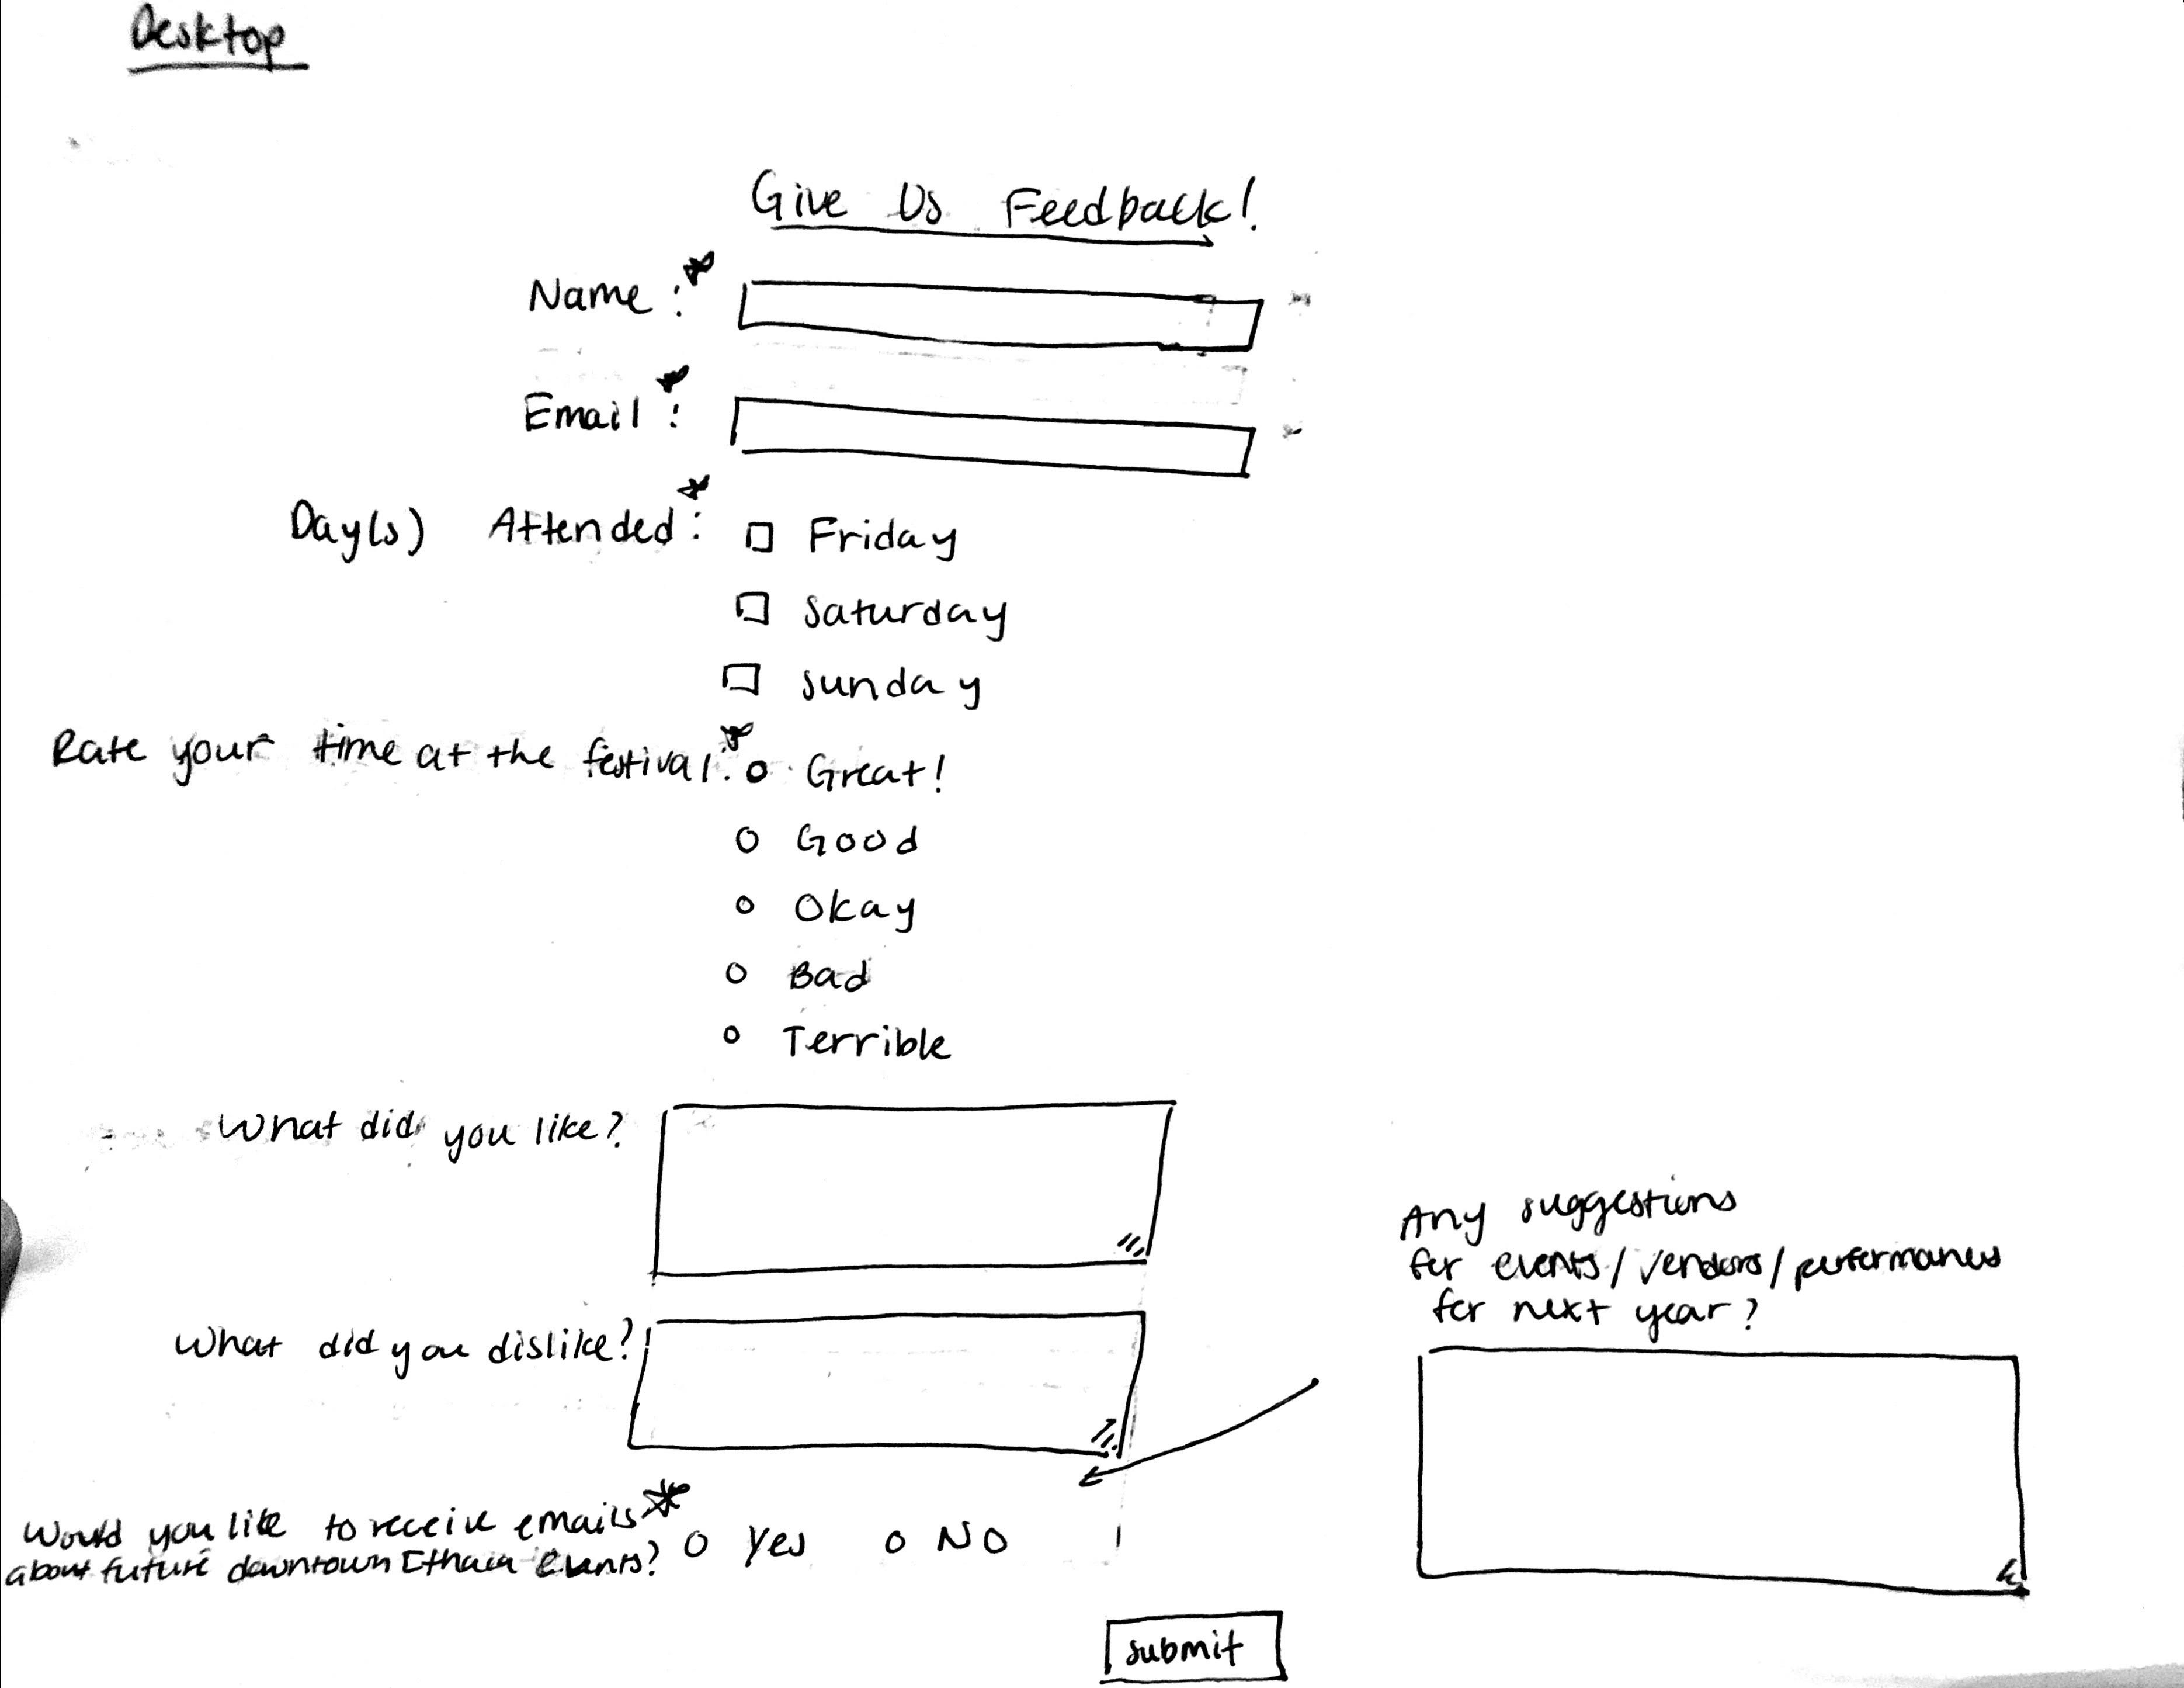 Desktop
Give Us Feedback!
Name :*
Email *:
Day(s) Attended:*
Friday
Saturday
Sunday
Rate your time at the festival:*
Great!
Good
Okay
Bad
Terrible
What did you like?
What did you dislike?
Any suggestions
for events/vendors/performances
for next year?
Would you like to receive emails*
about future downtown Ithaca events?
Yes
No
submit